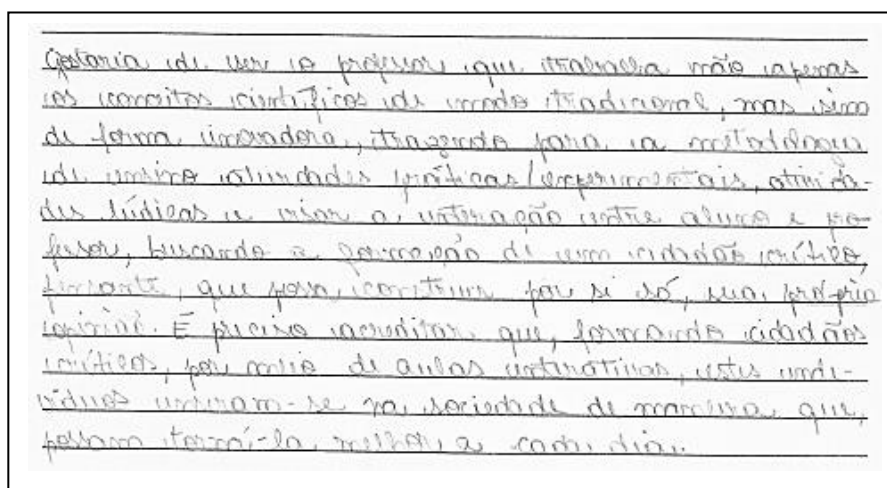 Gostaria de ser o professor que trabalha não apenas
os conceitos científicos de modo tradicional, mas sim
de forma inovadora, trazendo para a metodologia
de ensino atividades práticas/experimentais, ativida-
des lúdicas e visar a interação entre aluno e pro-
fessor, buscando a formação de um cidadão crítico,
pensante, que possa construir por si só, sua própria
opinião. É preciso acreditar que, formando cidadãos
críticos, por meio de aulas interativas, estes indi-
víduos insiram-se na sociedade de maneira que,
possam torná-la melhor a cada dia.